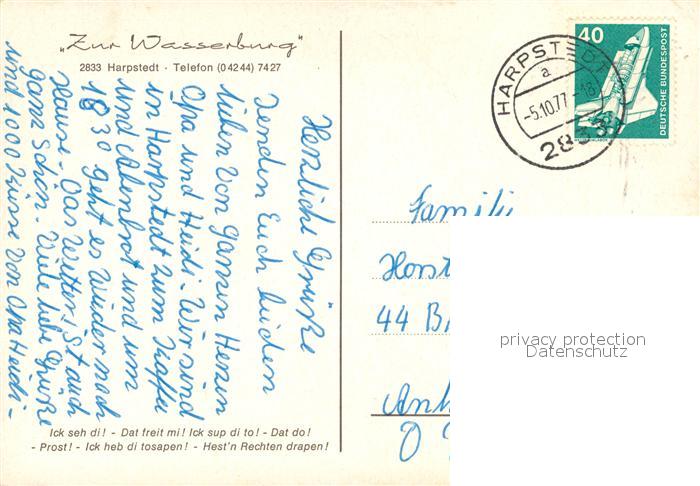 „Zur Wasserburg"
2833 Harpstedt · Telefon (04244) 7427
Herzliche Grüße
senden Euch beiden
lieben von ganzen Herzen
Opa und Heidi. Wir sind
in Harpstedt zum Kaffee
und Abendbrot und um
18 30 geht es wieder nach
Hause. Das Wetter ist auch
ganz schön. Viele liebe Grüße
und 1000 Küsse von Opa Heidi -
Ick seh di! - Dat freit mi! Ick sup di to! - Dat do!
- Prost! - Ick heb di tosapen! - Hest'n Rechten drapen!
40
DEUTSCHE BUNDESPOST
HARPSTEDT
a
-5.10.77-18
2833
Familie
Horst
44
privacy protection
Datenschutz